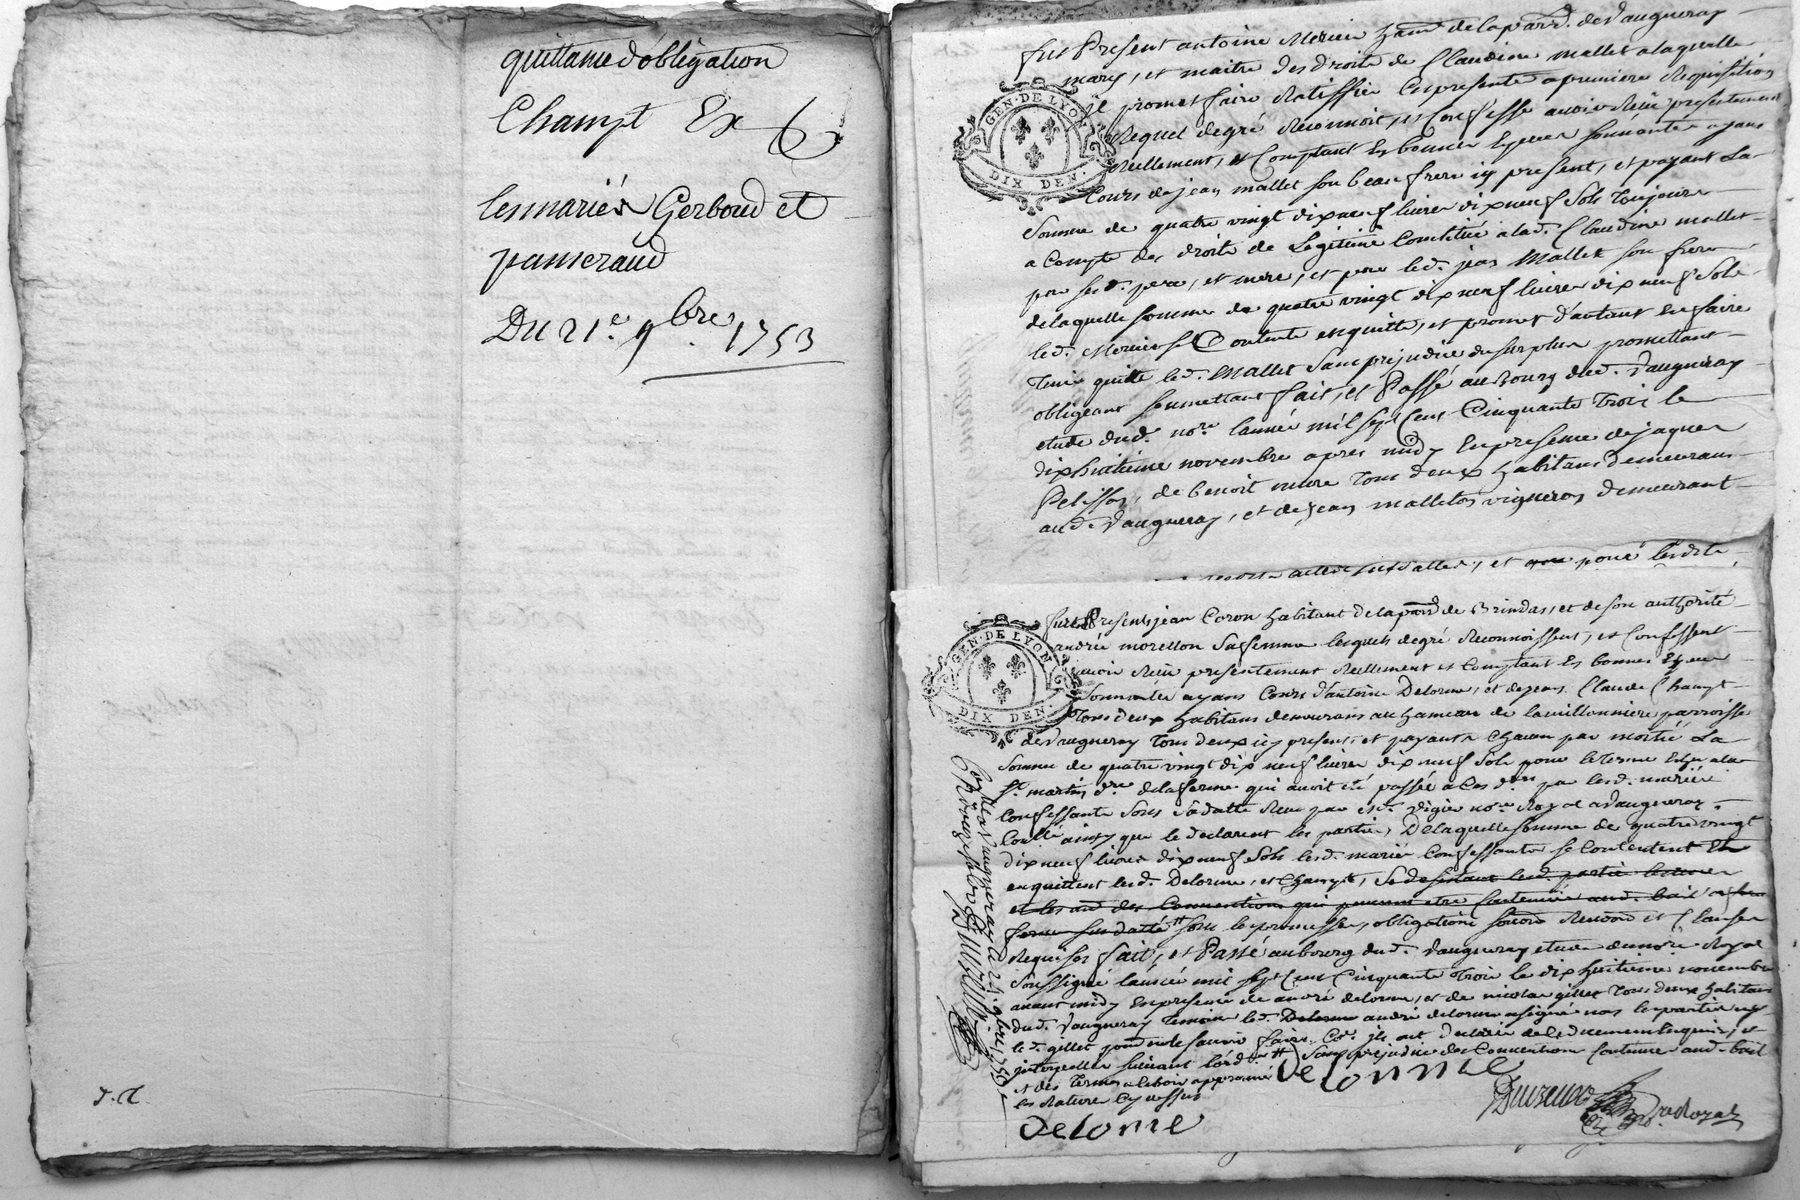 quittance d'obligation
Champt Ex
les mariés Gerboud et
panseraud
Du 21.e 9.bre 1753
d. d.
fut Present antoine Mercier hant. de la parr. de Vaugneray
mary, et maitre des droits de Claudine mallet a laquelle
il promet faire Ratiffier Ces presentes a premiere Requisition
lequel de gré Reconnoit, et Confesse avoir Reçu presentement
Réellement, et Comptant En bonnes Especes sonnantes ayans
Cours de jean mallet son beau frere icy present, et payant La
Somme de quatre vingt dix neuf livres dix neuf Sols Toujours
a Compte des droits de Legitime Constitué a lad. Claudine mallet
par sesd. pere, et mere, et par led. jean Mallet son frere
de laquelle somme de quatre vingt dix neuf livres dix neuf Sols
led. Mercier se Contente en quitte, et promet d'autant En faire
Tenir quitte led. Mallet Sans prejudice du surplus promettant
obligeant soumettant fait, et Passé au Bourg dud. Vaugneray
etude dud. no.re l'année mil sept Cens Cinquante Trois le
dix huitieme novembre apres midy En presence de jaques
Pelisson, de benoit mure Tous deux habitans demeurans
aud. Vaugneray, et de jean malleton vigneron demeurant
GEN. DE LYON
DIX DEN.
furent Presents jean Coron habitant de la parr. de Brindas, et de son authorité
andrée morellon Sa femme lesquels de gré Reconnoissent, et Confessent
avoir Reçu presentement Réellement et Comptant En bonnes Especes
Sonnantes ayans Cours d'antoine Delorme, et de jean Claude Champt
Tous deux habitans demeurans au hameau de la millonniere parroisse
de Vaugneray Tous deux icy presents et payants Chacun par moitié La
Somme de quatre vingt dix neuf livres dix neuf Sols pour le terme Echu a la
St. martin dre. de la ferme qui avoit été passée a Ces d. par lesd. mariés
Confessants Sous Sa datte Reçu par Me. Vigier no.re Royal a Vaugneray
Coll.é ainsy que le declarent les parties, De laquelle somme de quatre vingt
dix neuf livres dix neuf Sols lesd. mariés Confessants se Contentent En
en quittent lesd. Delorme, et Champt, Se desistant lesd. parties
des Conventions qui peuvent etre Contenües aud. bail a
ferme sus datté Sous les promesses, obligations Renon et Clauses
Requises fait, et Passé au bourg dud. Vaugneray etude du no.re Royal
Soussigné l'année mil sept Cens Cinquante Trois le dix huitieme novembre
avant midy En presence de andré delorme, et de nicolas gillet Tous deux habitans
dud. Vaugneray Temoins led. Delorme andré delorme a signé non les parties ny
led. gillet pour ne le savoir faire Ce. ils ont declaré de ce duement Enquis, et
interpellés suivant l'ord. Sans prejudice des Conventions Contenues aud. bail
et des Termes a Echoir approuvé
les Ratures Cy dessus
Delorme
Delorme
no.re Royal
GEN. DE LYON
DIX DEN.